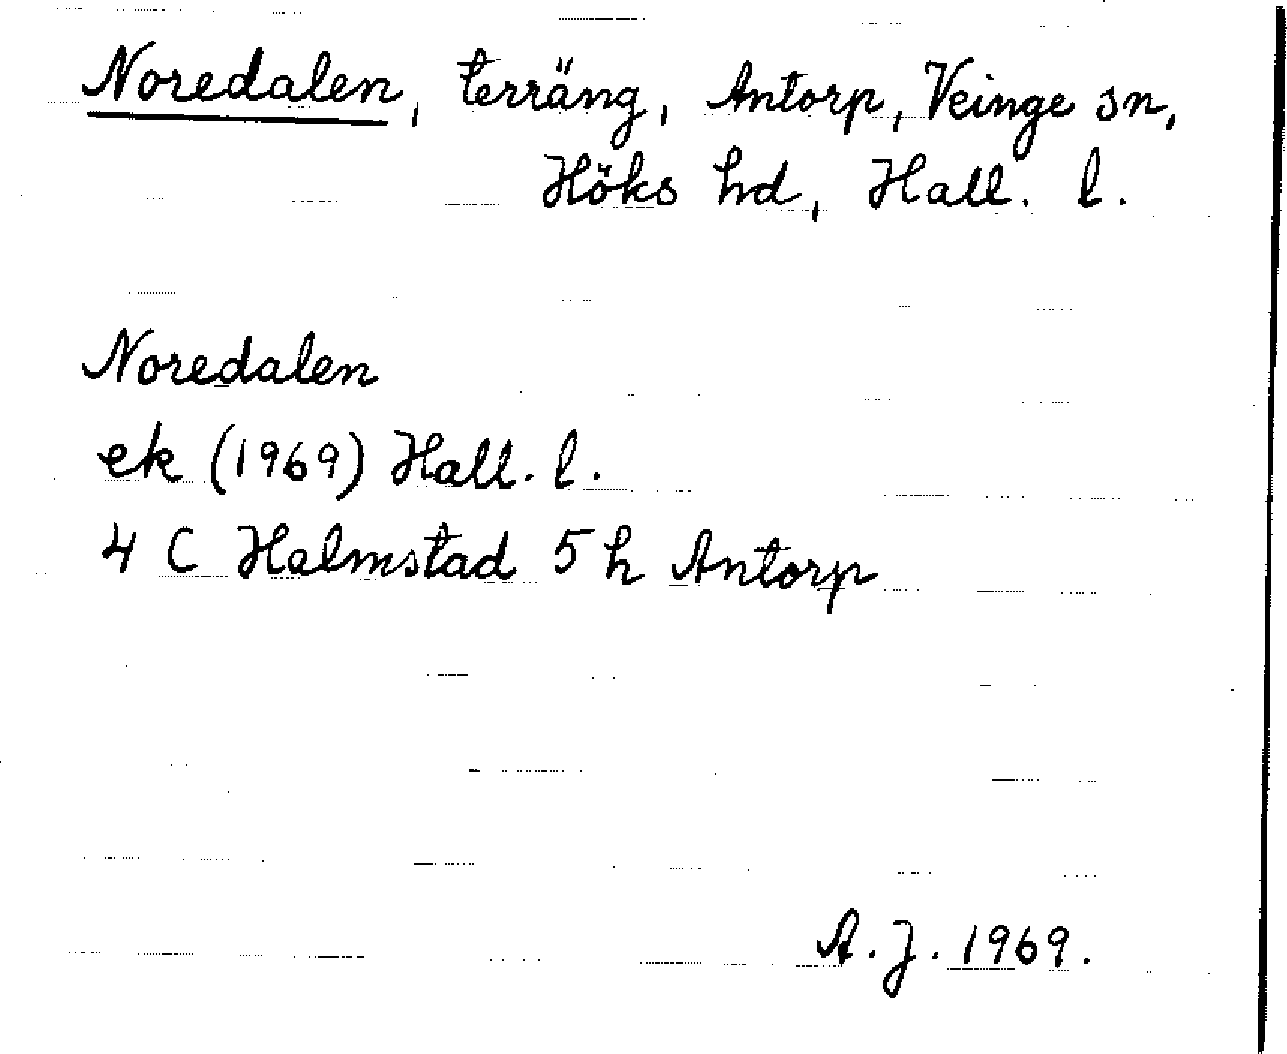 Noredalen, terräng, Antorp, Veinge sn,
Höks hd, Hall. l.
Noredalen
ek (1969) Hall. l.
4 C Halmstad 5 h Antorp
A. J. 1969.